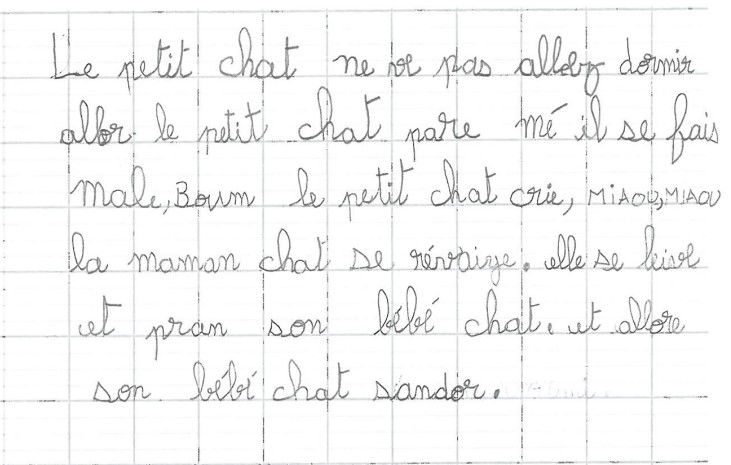 Le petit chat ne ve pas aller dormir
allor le petit chat pare mé il se fais
male, Boum le petit chat crie, MiAOU, MiAOU
la maman chat se révaiye. elle se leive
et pran son bébé chat. et allore
son bébé chat s'andor.